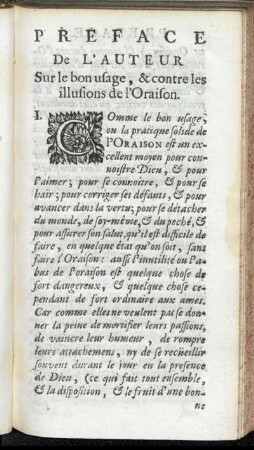 PREFACE
DE L'AUTEUR
Sur le bon usage, & contre les
illusions de l'Oraison.
I. COmme le bon usage,
ou la pratique solide de
l'ORAISON est un ex-
cellent moyen pour con-
noistre Dieu, & pour
l'aimer; pour se connoitre, & pour se
hair; pour corriger ses défauts, & pour
avancer dans la vertu; pour se détacher
du monde, de soy-même, & du peché, &
pour asseurer son salut, qu'il est difficile de
faire, en quelque état qu'on soit, sans
faire l'Oraison: aussi l'inutilité ou l'a-
bus de l'oraison est quelque chose de
fort dangereux, & quelque chose ce-
pendant de fort ordinaire aux ames.
Car comme elles ne veulent pas se don-
ner la peine de mortifier leurs passions,
de vaincre leur humeur, de rompre
leurs attachemens, ny de se recüeillir
souvent durant le jour en la presence
de Dieu, (ce qui fait tout ensemble,
& la disposition, & le fruit d'une bon-
ne